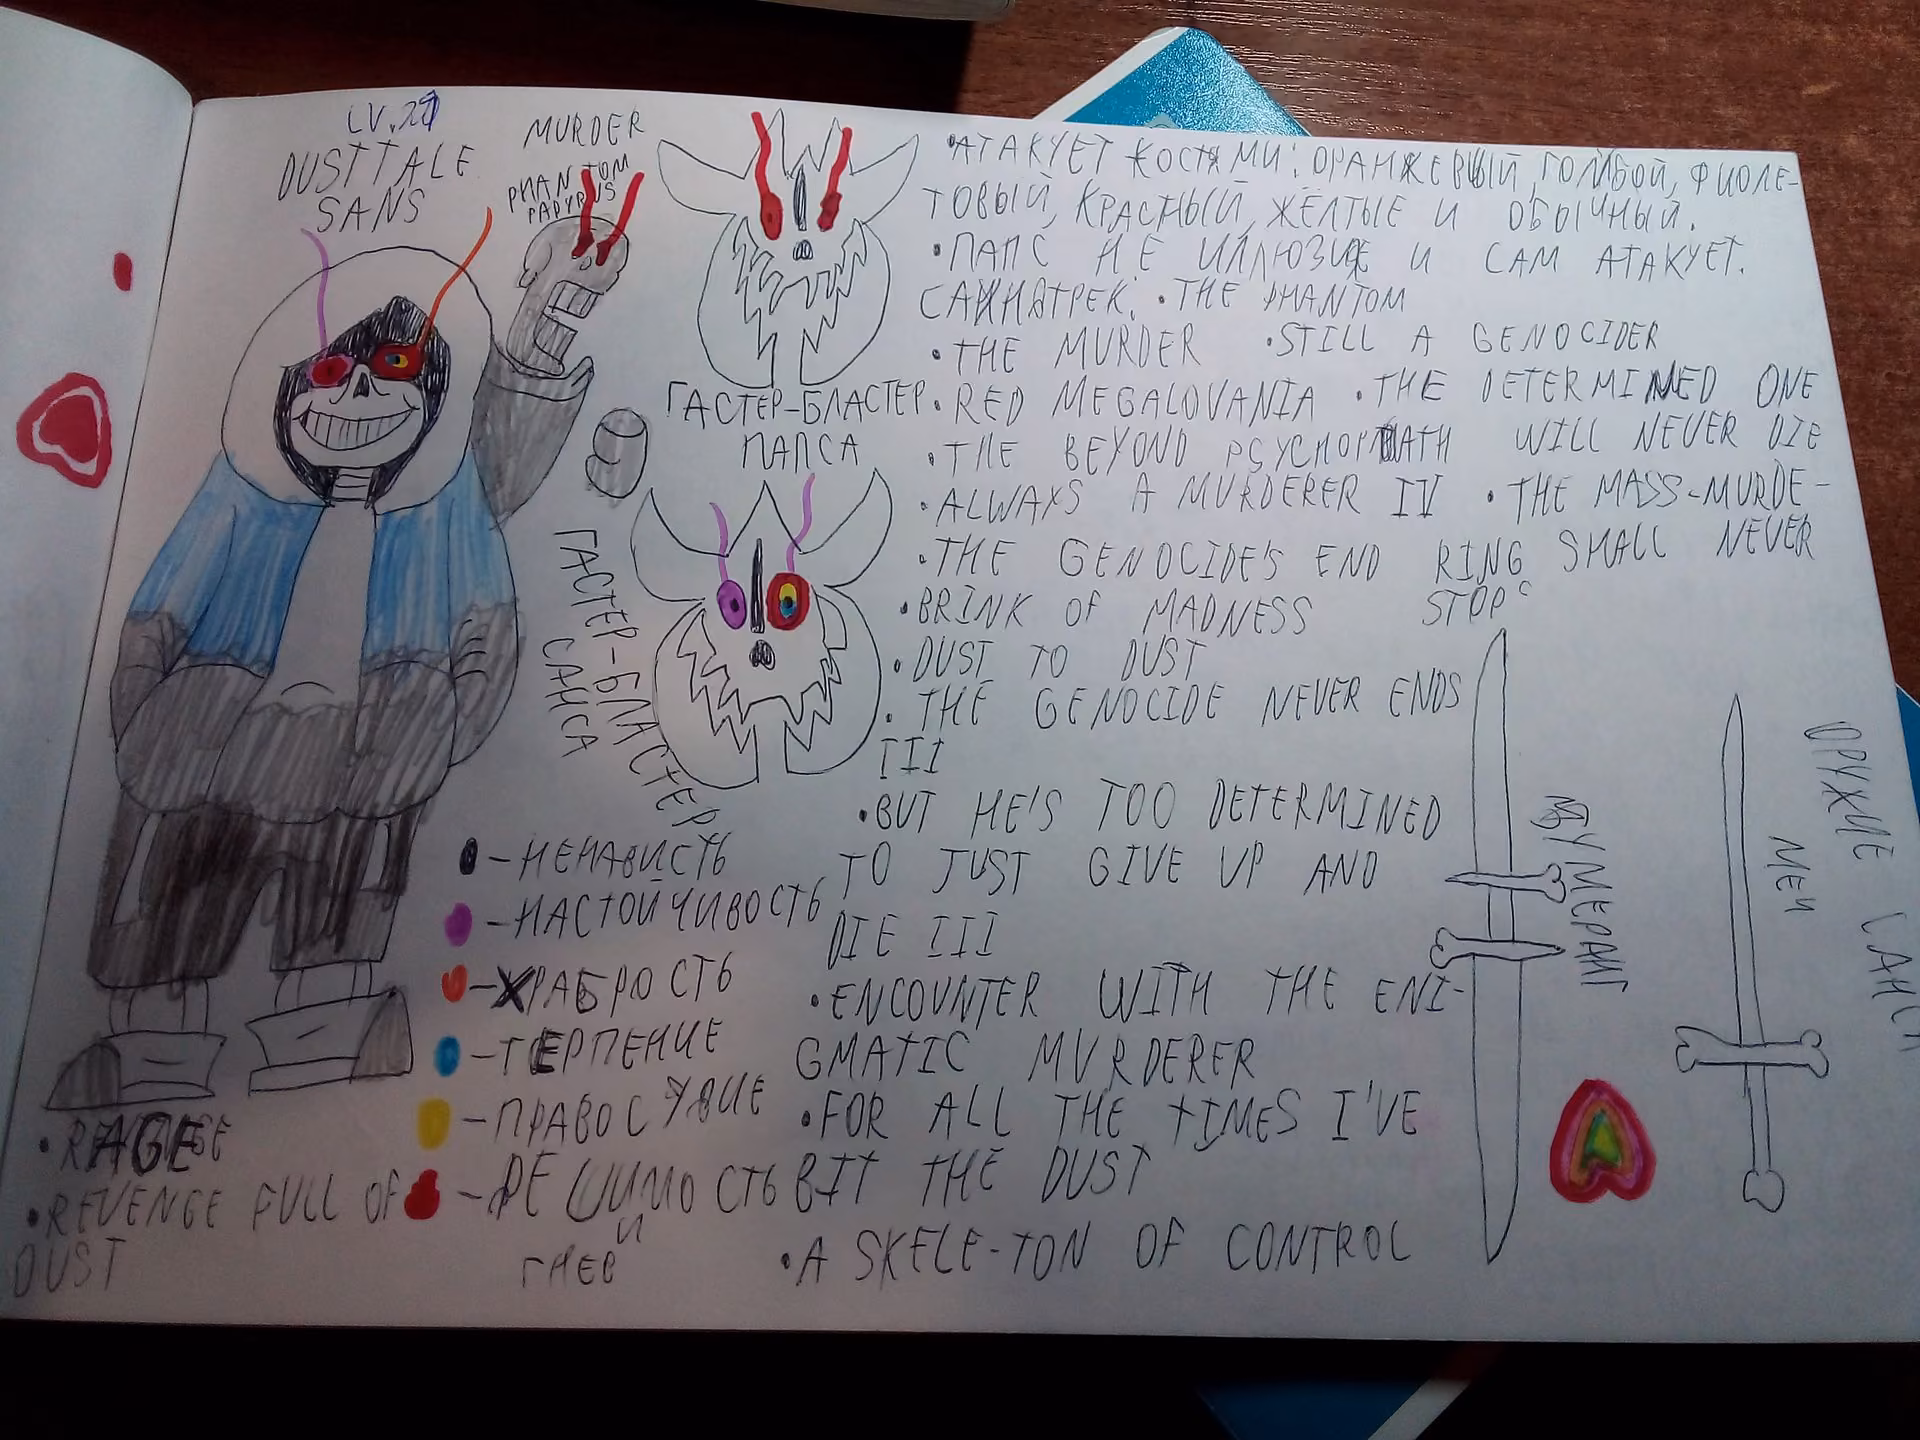 DUSTTALE
SANS
MURDER
PHANTOM
PAPYRUS
ГАСТЕР-БЛАСТЕР
ПАПСА
ГАСТЕР-БЛАСТЕР
САНСА
•АТАКУЕТ КОСТЯМИ: ОРАНЖЕВЫЙ, ГОЛУБОЙ, ФИОЛЕ-
ТОВЫЙ, КРАСНЫЙ, ЖЁЛТЫЕ И ОБЫЧНЫЙ.
•ПАПС НЕ ИЛЛЮЗИЯ И САМ АТАКУЕТ.
САУНДТРЕК: •THE PHANTOM
•THE MURDER •STILL A GENOCIDER
•RED MEGALOVANIA •THE DETERMINED ONE
WILL NEVER DIE
•THE BEYOND PSYCHOPATH
•ALWAYS A MURDERER IV •THE MASS-MURDE-
RING SHALL NEVER
STOP
•THE GENOCIDE'S END
•BRINK OF MADNESS
•DUST TO DUST
•THE GENOCIDE NEVER ENDS
III
•BUT HE'S TOO DETERMINED
TO JUST GIVE UP AND
DIE III
•ENCOUNTER WITH THE ENI-
GMATIC MURDERER
•FOR ALL THE TIMES I'VE
BIT THE DUST
•A SKELE-TON OF CONTROL
- НЕНАВИСТЬ
- НАСТОЙЧИВОСТЬ
- ХРАБРОСТЬ
- ТЕРПЕНИЕ
- ПРАВОСУДИЕ
- РЕШИМОСТЬ
И
ГНЕВ
•REVENGE FULL OF
DUST
БУМЕРАНГ
МЕЧ
ОРУЖИЕ САНСА